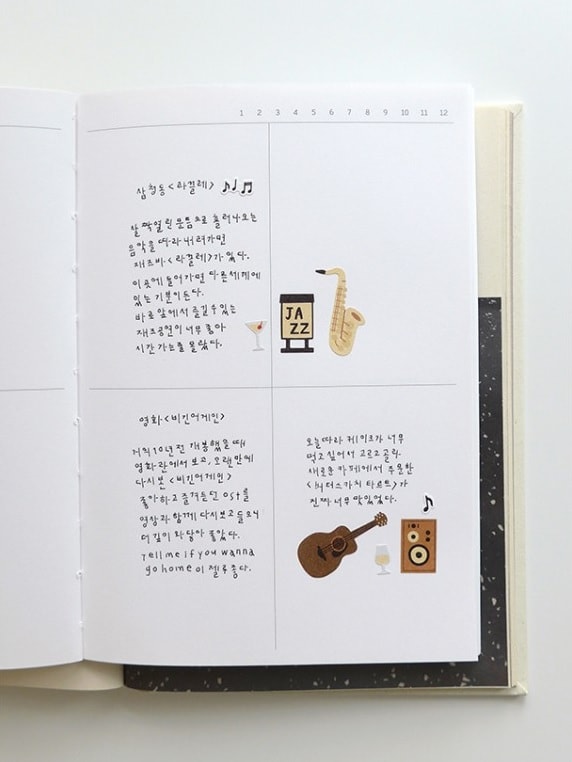 1 2 3 4 5 6 7 8 9 10 11 12
삼청동 <라끌레>
살짝 열린 문틈으로 흘러나오는
음악을 따라 내려가면
재즈바 <라끌레>가 있다.
이곳에 들어가면 다른 세계에
있는 기분이 든다.
바로 앞에서 즐길 수 있는
재즈공연이 너무 좋아
시간 가는 줄 몰랐다.
JA
ZZ
영화 <비긴어게인>
거의 10년 전 개봉했을 때
영화관에서 보고, 오랜만에
다시 본 <비긴어게인>
좋아하고 즐겨듣던 ost를
영상과 함께 다시 보고 들으니
더 깊이 와닿아 좋았다.
Tell me if you wanna
go home이 젤루 좋다.
오늘따라 케이크가 너무
먹고 싶어서 고르고 골라
새로운 카페에서 주문한
<버터스카치 타르트>가
진짜 너무 맛있었다.